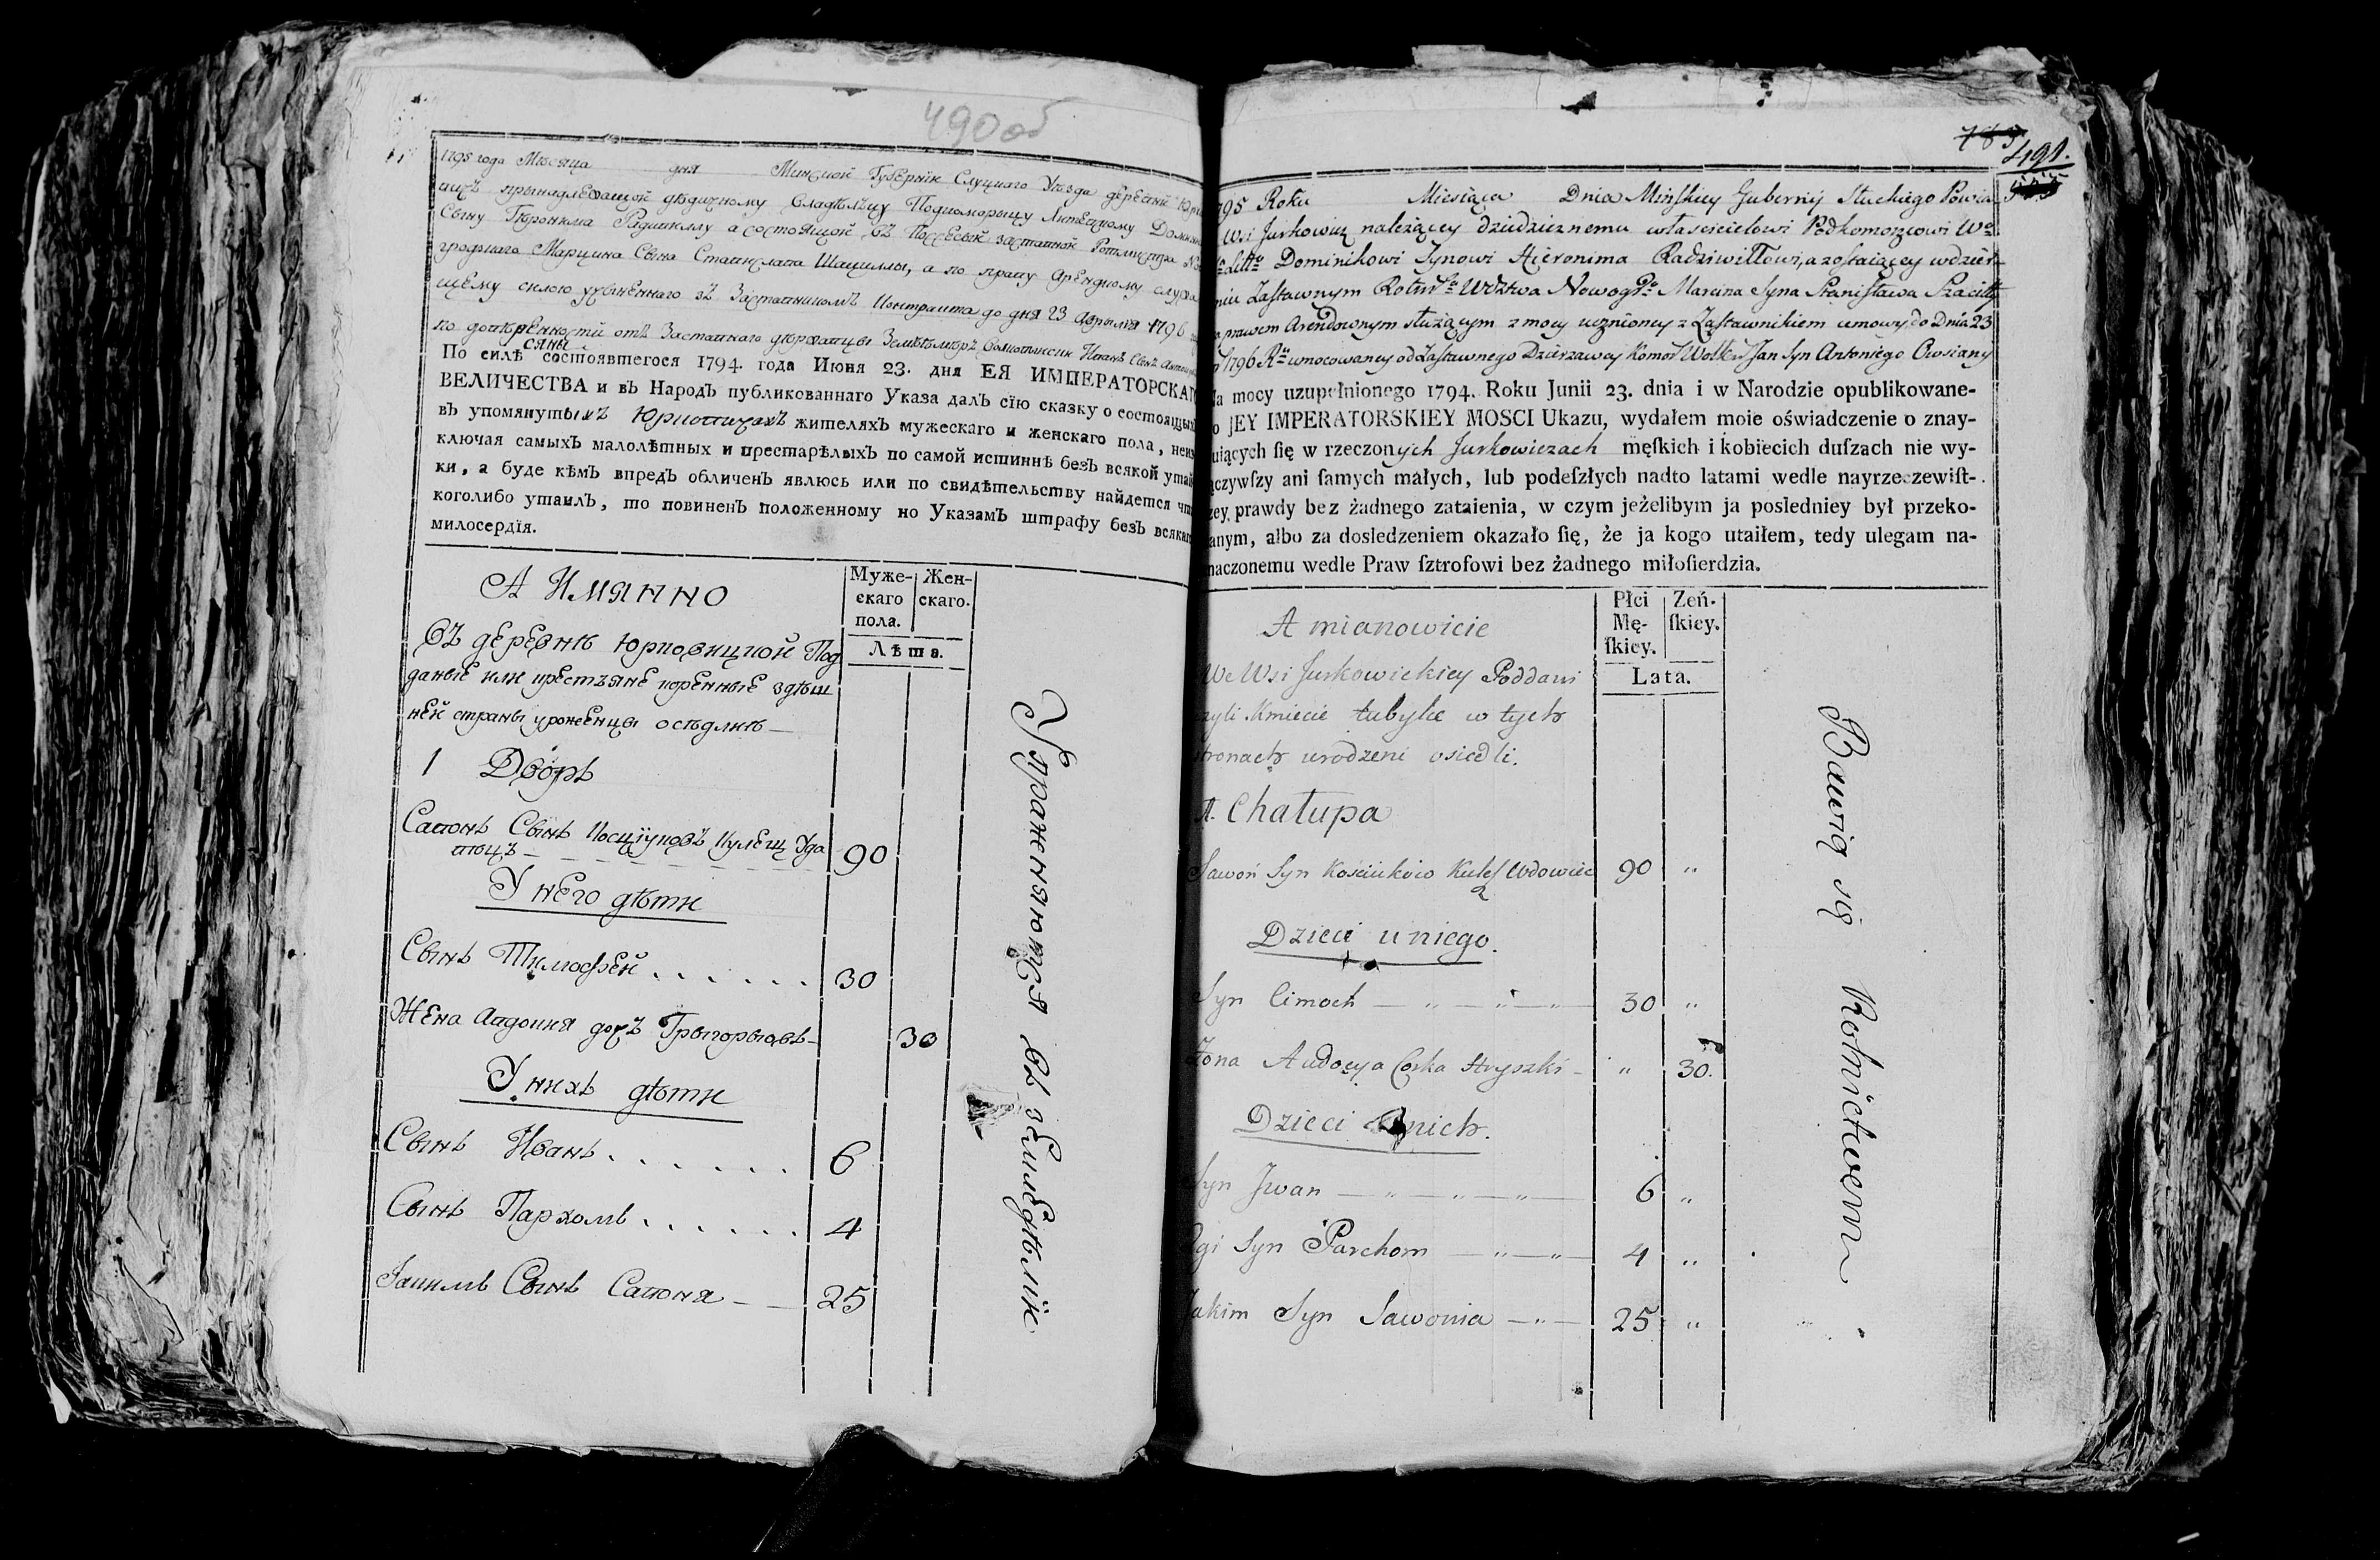 490 об
1795 года Мѣсяца дня Минской Губернїи Слуцкаго Уѣзда деревни
принадлежащой дѣдичному Владѣльцу Подкоморыцу Литевскому
Сыну Гіронима Радивиллу а состоящой въ Поссесыи заставной Ротмистра
Марцина Сына Станислава Шациллы, а по праву Арендному
силою учыненнаго зъ Заставникомъ Контракта до дня 23 Апрыля 1796
по довѣренности отъ Заставнаго державцы Иванъ Сынъ
сяны
По силѣ состоявшегося 1794. года Июня 23. дня ЕЯ ИМПЕРАТОРСКАГО
ВЕЛИЧЕСТВА и въ Народъ публикованнаго Указа далъ сїю сказку о состоящихъ
въ упомянутыхъ Юрковичахъ жителяхъ мужескаго и женскаго пола, неиз
ключая самыхъ малолѣтныхъ и престарѣлыхъ по самой истиннѣ безъ всякой утай
ки, а буде кѣмъ впредъ обличенъ явлюсь или по свидѣтельству найдется что
коголибо утаилъ, то повиненъ положенному но Указамъ штрафу безъ всякаго
милосердїя.
А Имянно
Муже-
скаго
пола.
Жен-
скаго.
Лѣта.
Въ деревнѣ Юрковицкой Под
даныё или крестъянё коренныё здѣш
ней страны уроженцы осѣдлиѣ —
1 Дворъ
Савонъ Сынъ Косцїуковъ Кулеш Уда
вецъ — 90
У него дѣти
Сынъ Тимофей . . . . . . 30
Жена Авдокия дочъ Грыгорыовъ — 30
У нихъ дѣти
Сынъ Иванъ . . . . . . 6
Сынъ Пархомъ . . . . . . 4
Іакимъ Сынъ Савоня — — 25
Упражняются въ земледѣлїи
483
491.
1795 Roku Miesiąca Dnia Minſkiey Gubernij Słuckiego Powia
Wsi Jurkowicz należącey dziedzicznemu właścicielowi Podkomorzowi Wo
Litto Dominikowi Synowi Hieronima Radziwiłłowi, a zostaiącey w dzier
niu Zastawnym Rotmo Wdztwa Nowogo Marcina Syna Stanisława Szacłłł
prawem Arendownym służącym z mocy ucznioney z Zastawnikiem umowy do Dnia 23
1796 Ru umocowaney od Zastawnego Dzierzawcy Komor Jan Syn Antoniego Owsiany
Na mocy uzupełnionego 1794. Roku Junii 23. dnia i w Narodzie opublikowane-
go JEY IMPERATORSKIEY MOSCI Ukazu, wydałem moie oświadczenie o znay-
duiących ſię w rzeczonych Jurkowiczach męſkich i kobiecich duſzach nie wy-
łączywſzy ani ſamych małych, lub podeſzłych nadto latami wedle nayrzeczewiſt-
ſzey prawdy bez żadnego zataienia, w czym jeżelibym ja posledniey był przeko-
nanym, albo za dosledzeniem okazało ſię, że ja kogo utaiłem, tedy ulegam na-
znaczonemu wedle Praw ſztrofowi bez żadnego miłoſierdzia.
A mianowicie
Płci
Mę-
ſkiey.
Zeń-
ſkiey.
Lata.
We Wsi Jurkowickiey Poddani
czyli Kmiecie tubylce w tych
stronach urodzeni osiedli.
Chałupa
Sawoń Syn Kościukow Kuleſz Wdowiec 90 „
Dzieci u niego.
Syn Cimoch — „ — „ — „ — 30 „
Zona Audocya Corka Hryszki — „ 30.
Dzieci u nich.
Syn Jwan — „ — „ — „ — 6 „
Drgi Syn Parchom — „ — „ — 4 „
Jakim Syn Sawonia — „ — 25 „
Bawią się Rolnictwem